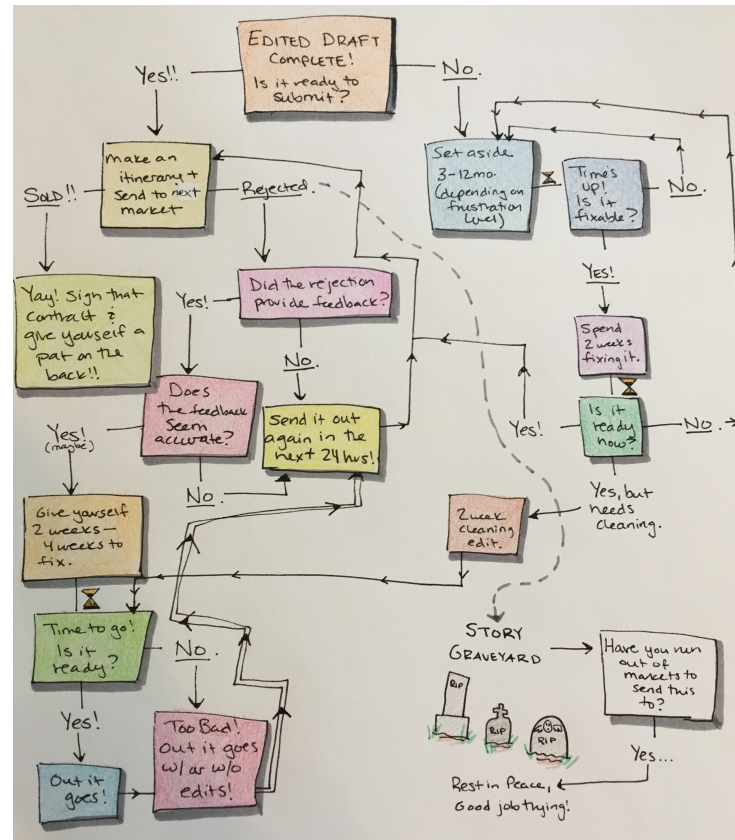 EDITED DRAFT
COMPLETE!
Is it ready to
submit?
Yes!!
No.
Make an
itinerary +
Send to next
market
SOLD!!
Rejected.
Set aside
3-12mo.
(depending on
frustration
level)
Time's
up!
Is it
fixable?
No.
Yay! Sign that
contract &
give yourself a
pat on the
back!!
Yes!
Did the rejection
provide feedback?
No.
YES!
Spend
2 weeks
fixing it.
Does
the feedback
seem
accurate?
Send it out
again in the
next 24 hrs!
Yes!
Is it
ready
now?
No.
Yes!
(maybe)
No.
Yes, but
needs
cleaning.
Give yourself
2 weeks—
4 weeks to
fix.
2 week
cleaning
edit.
Time to go!
Is it
ready?
No.
STORY
GRAVEYARD
Have you run
out of
markets to
send this
to?
RIP
RIP
RIP
Yes!
Too Bad!
Out it goes
w/ or w/o
edits!
Out it
goes!
Yes...
Rest in Peace,
Good job trying!